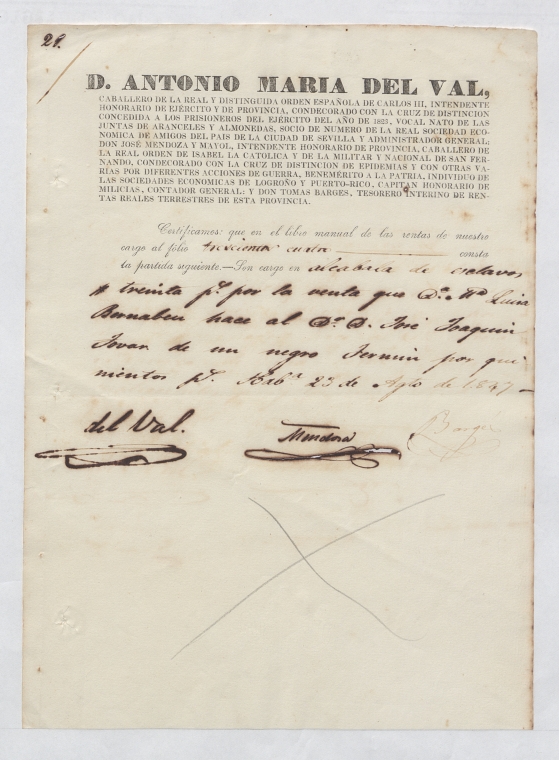 28.
D. ANTONIO MARIA DEL VAL,
CABALLERO DE LA REAL Y DISTINGUIDA ORDEN ESPAÑOLA DE CARLOS III, INTENDENTE
HONORARIO DE EJÉRCITO Y DE PROVINCIA, CONDECORADO CON LA CRUZ DE DISTINCION
CONCEDIDA A LOS PRISIONEROS DEL EJÉRCITO DEL AÑO DE 1823, VOCAL NATO DE LAS
JUNTAS DE ARANCELES Y ALMONEDAS, SOCIO DE NUMERO DE LA REAL SOCIEDAD ECO-
NOMICA DE AMIGOS DEL PAIS DE LA CIUDAD DE SEVILLA Y ADMINISTRADOR GENERAL;
DON JOSÉ MENDOZA Y MAYOL, INTENDENTE HONORARIO DE PROVINCIA, CABALLERO DE
LA REAL ORDEN DE ISABEL LA CATOLICA Y DE LA MILITAR Y NACIONAL DE SAN FER-
NANDO, CONDECORADO CON LA CRUZ DE DISTINCION DE EPIDEMIAS Y CON OTRAS VA-
RIAS POR DIFERENTES ACCIONES DE GUERRA, BENEMÉRITO A LA PATRIA, INDIVIDUO DE
LAS SOCIEDADES ECONOMICAS DE LOGROÑO Y PUERTO-RICO, CAPITAN HONORARIO DE
MILICIAS, CONTADOR GENERAL: Y DON TOMAS BARGES, TESORERO INTERINO DE REN-
TAS REALES TERRESTRES DE ESTA PROVINCIA.
Certificamos: que en el libro manual de las rentas de nuestro
cargo al folio trescientos cuarta consta
la partida siguiente.—Son cargo en alcabala de esclavos
treinta p.s por la venta que D.a M.a Luisa
Bernabeu hace al D.r D. José Joaquin
Tovar de un negro Fermin por qui
nientos p.s Hab.a 23 de Agto de 1847 —
del Val. Mendoza Barges